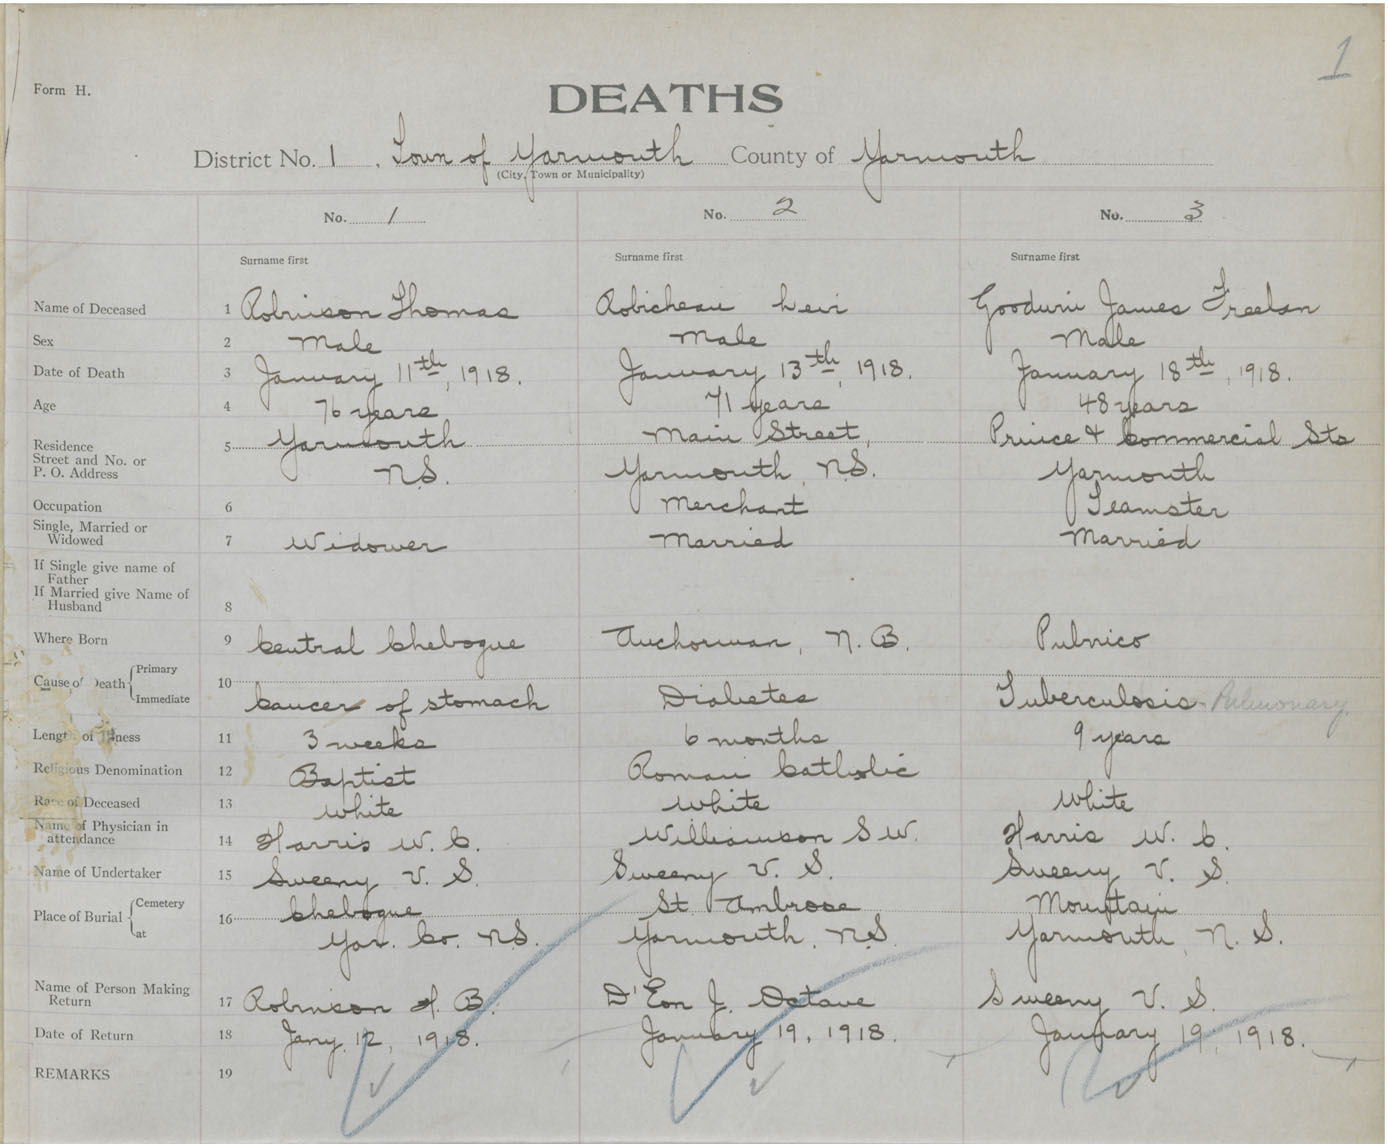 1
Form H.
DEATHS
District No. 1. Town of Yarmouth County of Yarmouth
(City, Town or Municipality)
No. 1 No. 2 No. 3
Surname first Surname first Surname first
Name of Deceased 1 Robinson Thomas Robicheau Levi Goodwin James Freelan
Sex 2 Male Male Male
Date of Death 3 January 11th, 1918. January 13th, 1918. January 18th, 1918.
Age 4 76 years 71 years 48 years
Residence 5 Yarmouth Main Street, Prince & Commercial Sts
Street and No. or
P. O. Address N.S. Yarmouth, N.S. Yarmouth
Occupation 6 Merchant Teamster
Single, Married or
Widowed 7 Widower Married Married
If Single give name of
Father
If Married give Name of
Husband 8
Where Born 9 Central Chebogue N. B. Pubnico
Cause of Death Primary 10
Immediate Cancer of stomach Diabetes Tuberculosis - Pulmonary
Length of Illness 11 3 weeks 6 months 9 years
Religious Denomination 12 Baptist Roman Catholic
Race of Deceased 13 White White White
Name of Physician in
attendance 14 Harris W. C. Williamson S W. Harris W. C.
Name of Undertaker 15 Sweeny V. S. Sweeny V. S. Sweeny V. S.
Place of Burial Cemetery 16 Chebogue St Ambrose Mountain
at Yar. Co. N.S. Yarmouth, N.S. Yarmouth, N. S.
Name of Person Making
Return 17 Robinson H. B. D'Eon J. Octave Sweeny V. S.
Date of Return 18 Jany. 12, 1918. January 19, 1918. January 19, 1918.
REMARKS 19